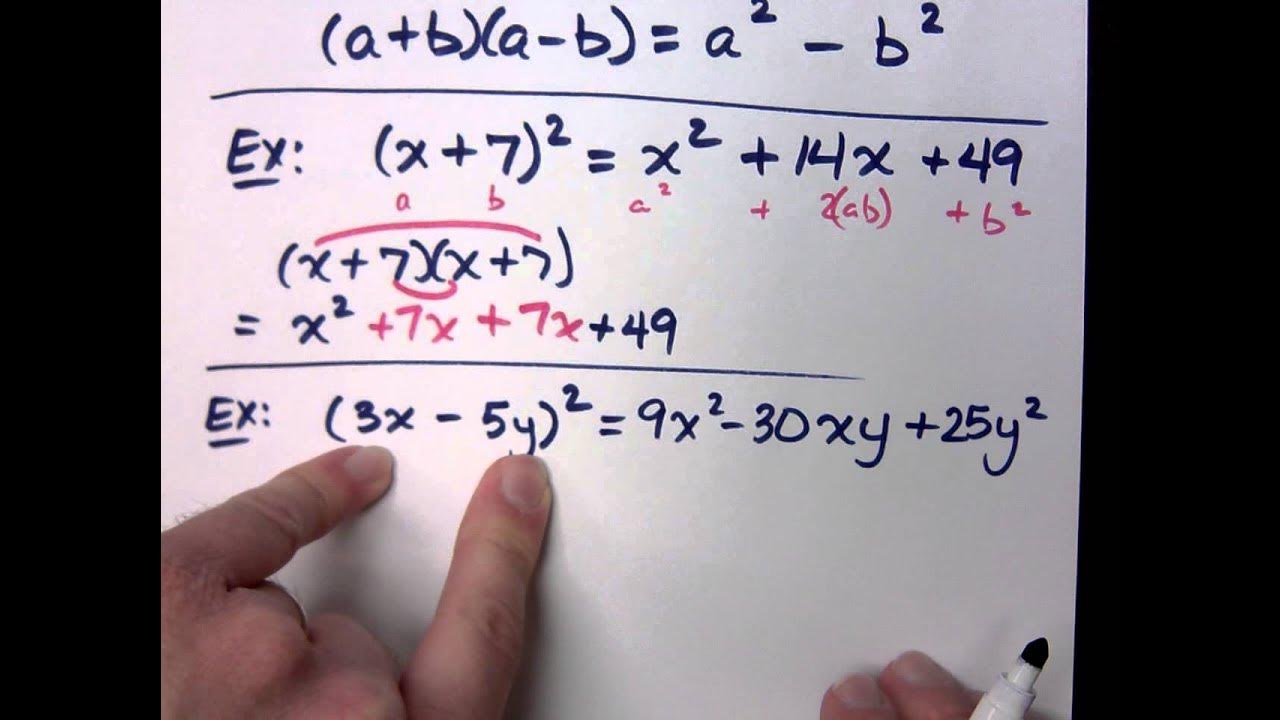 (a+b)(a-b) = a² - b²
Ex: (x+7)² = x² + 14x + 49
a b a² + 2(ab) + b²
(x+7)(x+7)
= x² +7x + 7x +49
Ex: (3x - 5y)² = 9x² - 30xy + 25y²